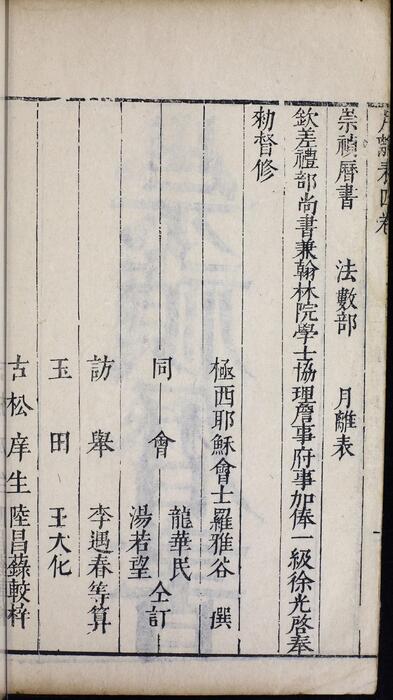 月離表四卷
崇禎曆書 法數部 月離表
欽差禮部尚書兼翰林院學士協理詹事府事加俸一級徐光啓奉
勑督修
極西耶穌會士羅雅谷 撰
同會 龍華民 湯若望 仝訂
訪舉 李遇春等算
玉田 王大化
古松庠生 陸昌蘓較梓